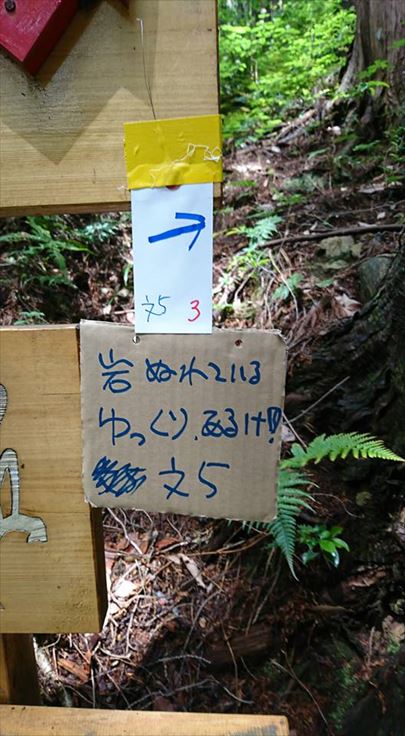 →
文5 3
岩ぬれている
ゆっくり、あるけ!!
文5